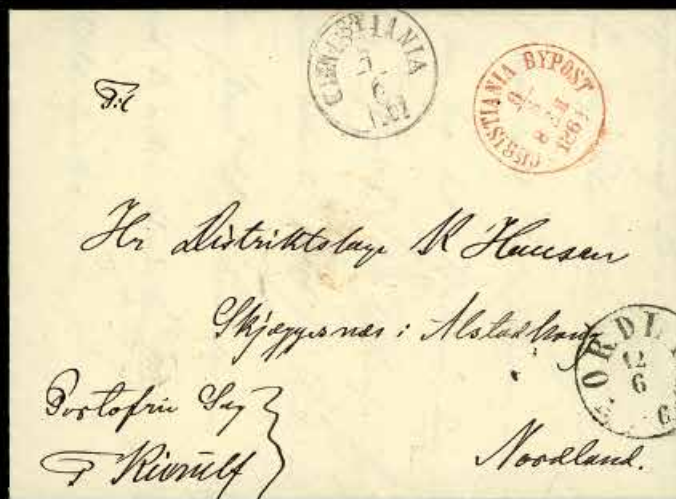 CHRISTIANIA
6
CHRISTIANIA BYPOST
8
Hr Distriktslæge K Hansen
Skjæggesnæs i Alstadhoug
NORDL
12
6
Portofrie Sag
Kierulf
Nordland.